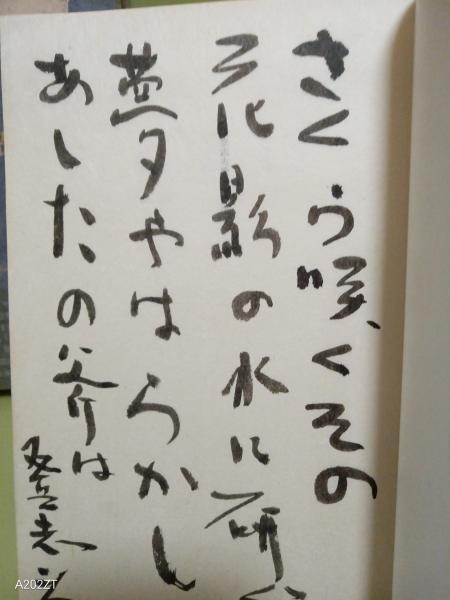 さくら咲くその
花影の水に研ぐ
夢やはらかし
あしたの斧は
登志夫
A202ZT